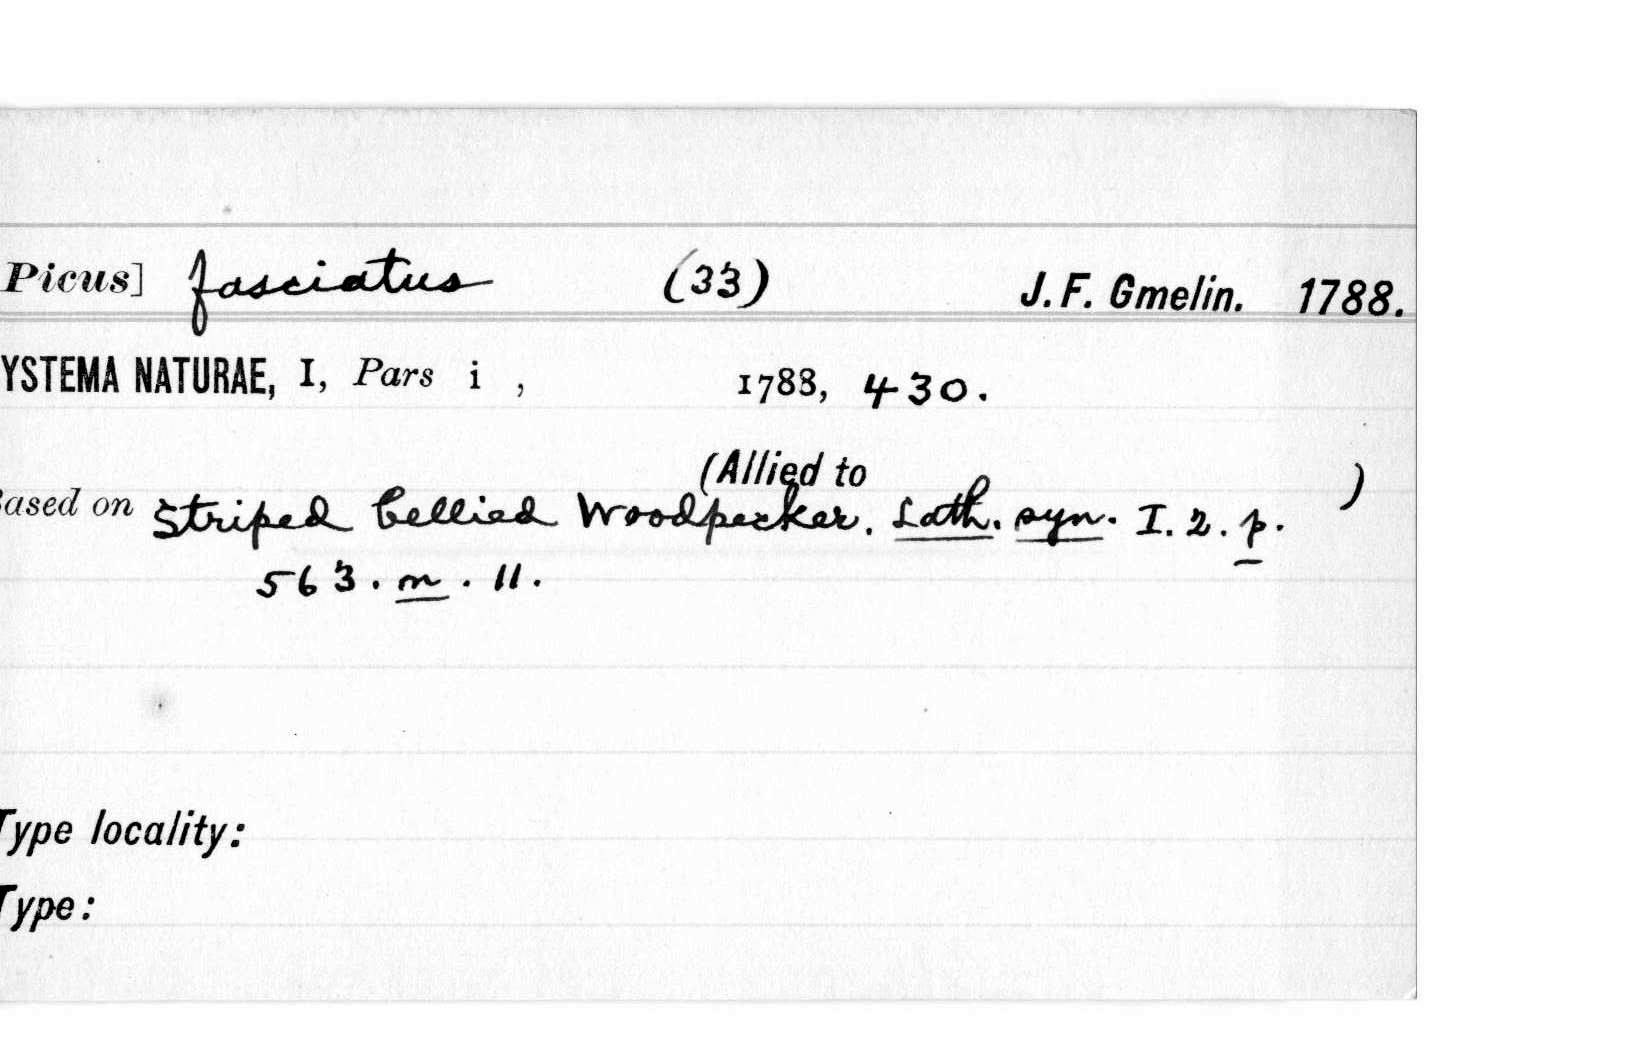 Picus] fasciatus (33) J. F. Gmelin. 1788.
YSTEMA NATURAE, I, Pars i , 1788, 430.
(Allied to )
ased on Striped bellied Woodpecker. Lath. syn. I. 2. p.
563. m. 11.
Type locality:
Type: